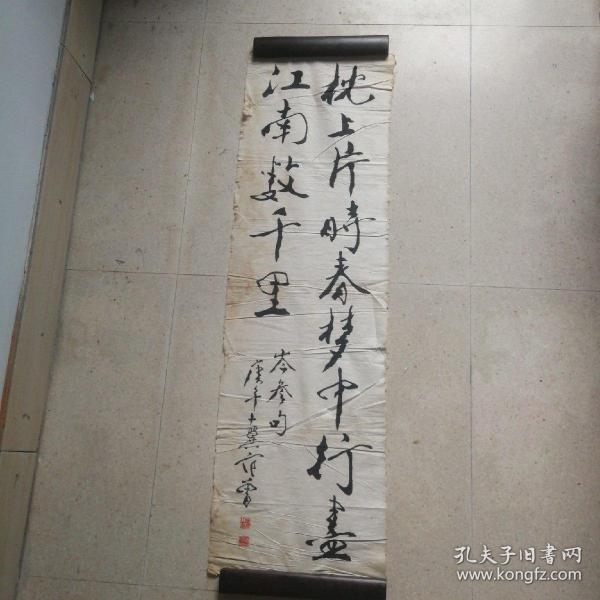 枕上片時春梦中行盡
江南数千里
岑參句
庚午十翼范曾
孔夫子旧書网
www.kongfz.com